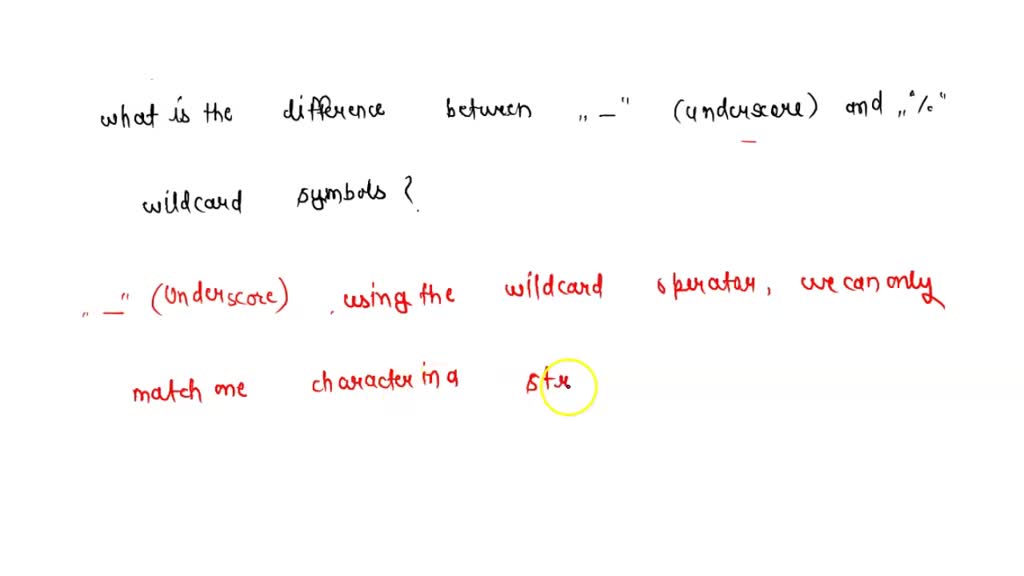 what is the difference between „_" (underscore) and „%"
wildcard symbols ?
„_" (underscore) , using the wildcard operator, we can only
match one character in a str